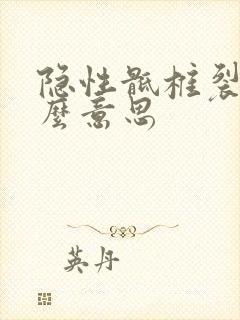 隐性骶柱裂
麼意思
英丹